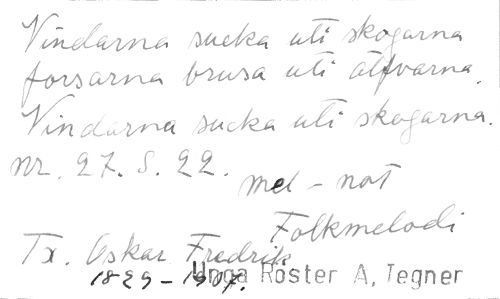 Vindarna sucka uti skogarna
forsarna brusa uti älfvarna.
Vindarna sucka uti skogarna.
nr. 27. S. 22.
mel - not
Folkmelodi
Tx. Oskar Fredrik
1829 - 1907.
Unga Röster A, Tegner